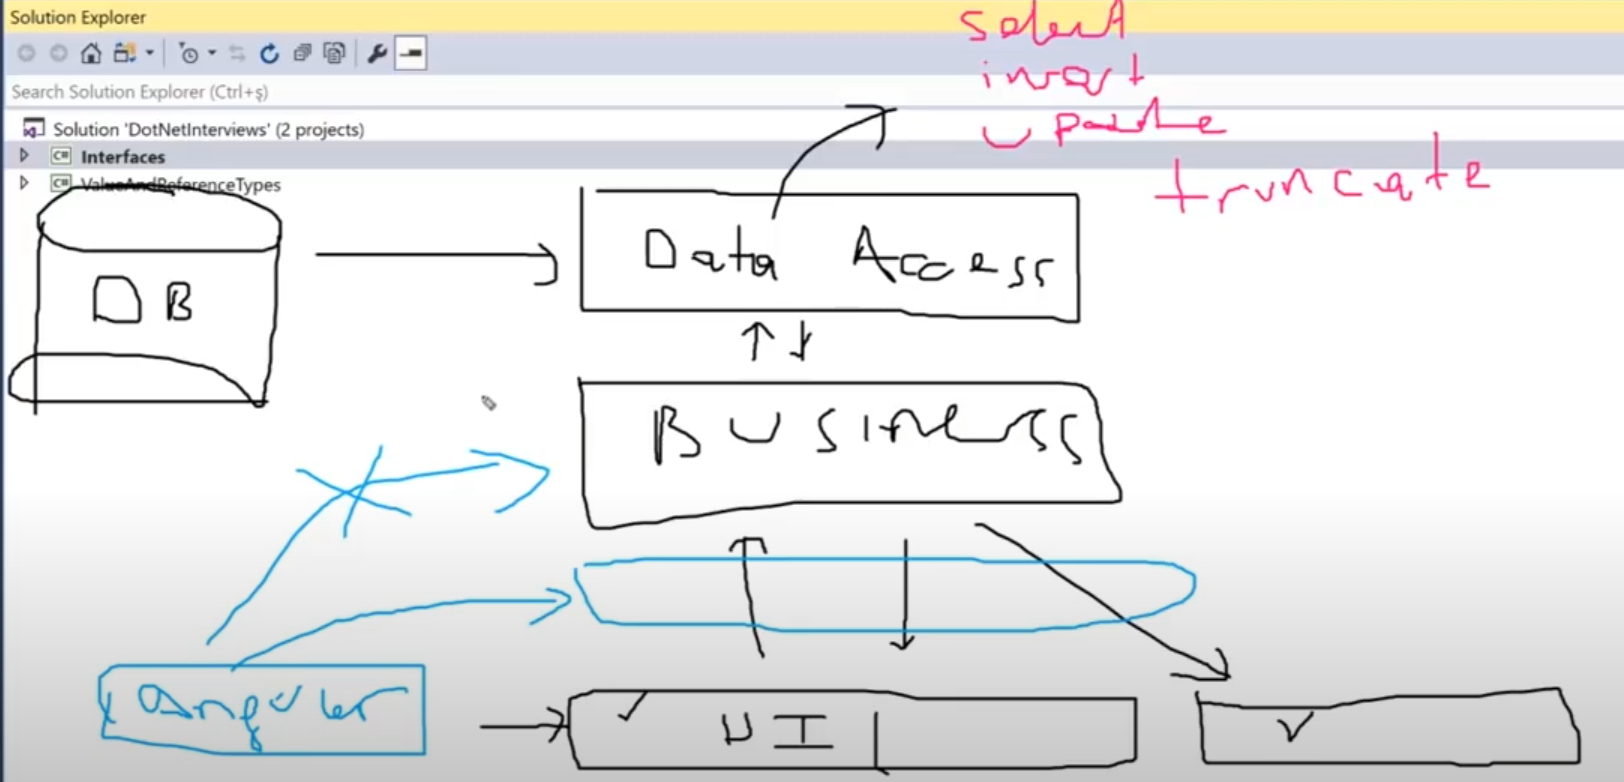 Solution Explorer
Search Solution Explorer (Ctrl+ş)
Solution 'DotNetInterviews' (2 projects)
C# Interfaces
C# ValueAndReferenceTypes
select
insert
update
truncate
Data Access
DB
Business
Angular
UI